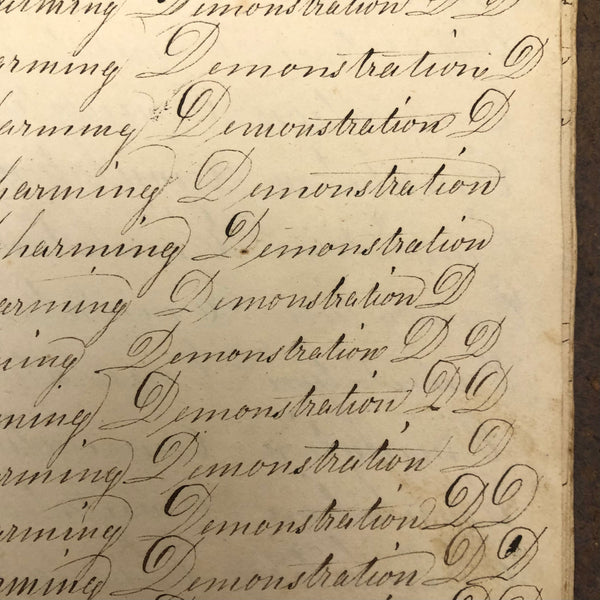 arming Demonstration D D
arming Demonstration D
arming Demonstration D
harming Demonstration
Charming Demonstration
arming Demonstration D
ning Demonstration D D
ming Demonstration D D
arming Demonstration D
arming Demonstration D D
ming Demonstration D D
D D